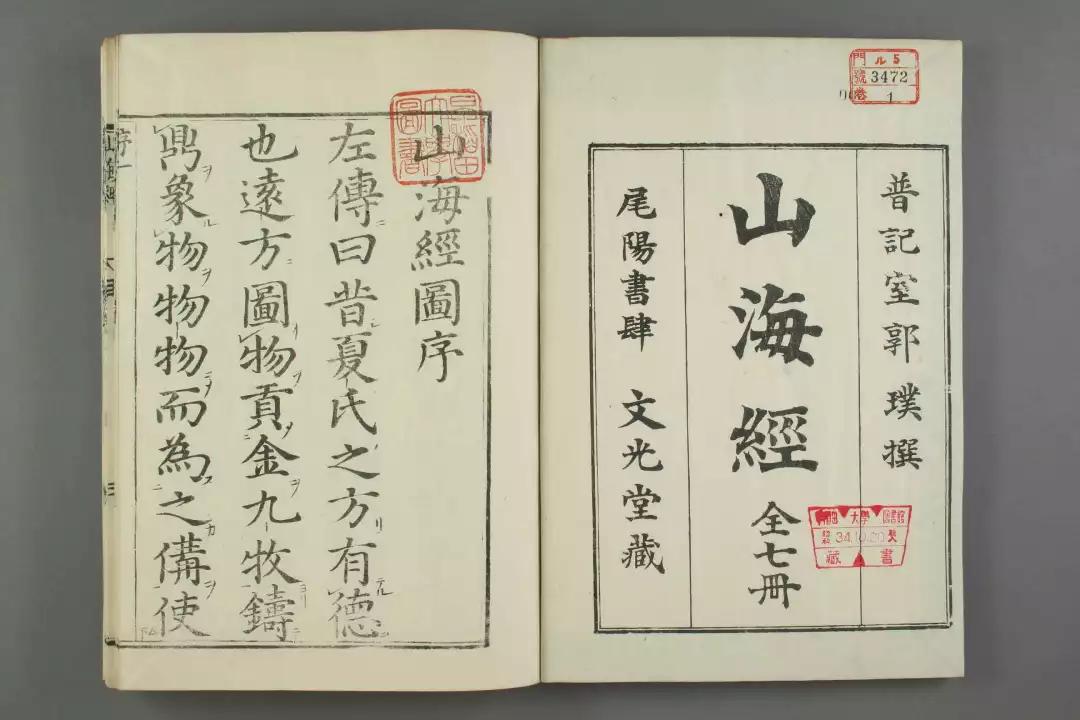 門 ル5
號 3472
巻 1
普記室郭璞撰
山海經 全七冊
尾陽書肆 文光堂藏
大學
34.10.20
藏書
山海經圖序
左傳曰昔夏氏之方有德
也遠方圖物貢金九牧鑄
鼎象物物物而為之備使
序一